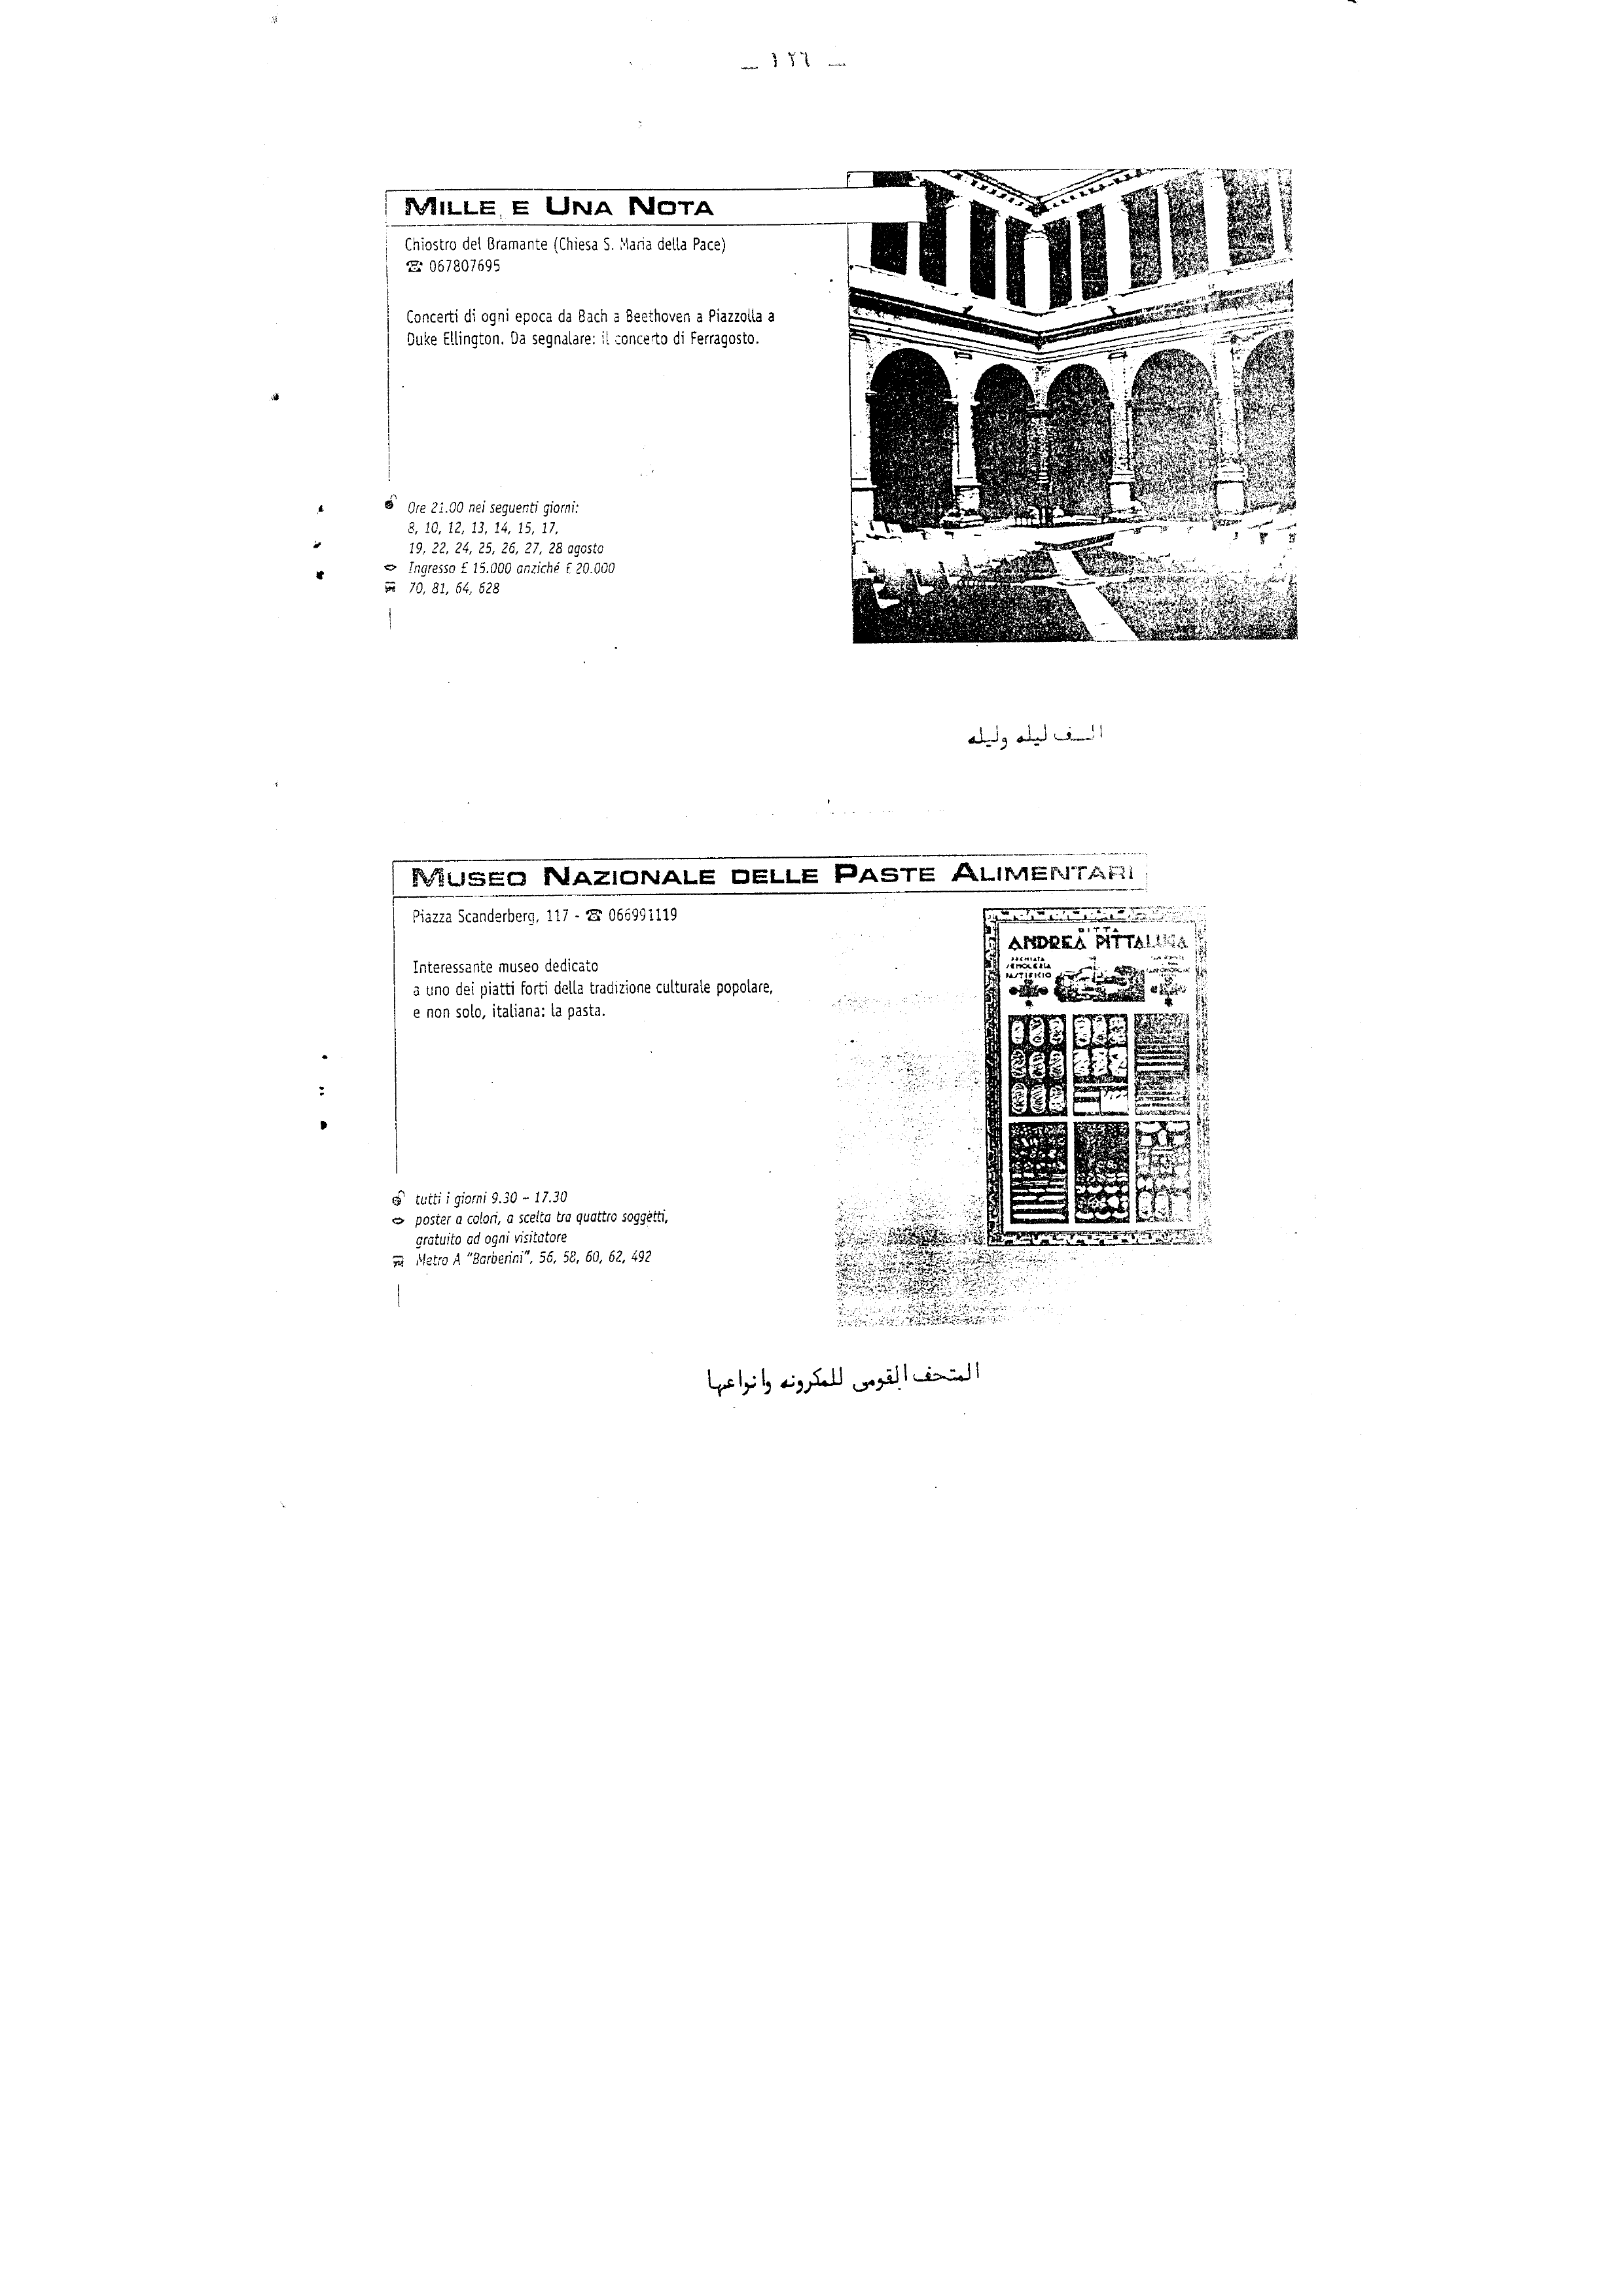 — ١٢٦ —
MILLE E UNA NOTA
Chiostro del Bramante (Chiesa S. Maria della Pace)
☎ 067807695
Concerti di ogni epoca da Bach a Beethoven a Piazzolla a
Duke Ellington. Da segnalare: il concerto di Ferragosto.
Ore 21.00 nei seguenti giorni:
8, 10, 12, 13, 14, 15, 17,
19, 22, 24, 25, 26, 27, 28 agosto
Ingresso £ 15.000 anziché £ 20.000
70, 81, 64, 628
الف ليله وليله
MUSEO NAZIONALE DELLE PASTE ALIMENTARI
Piazza Scanderberg, 117 - ☎ 066991119
Interessante museo dedicato
a uno dei piatti forti della tradizione culturale popolare,
e non solo, italiana: la pasta.
DITTA
ANDREA PITTALUGA
SEMOLERIA
PASTIFICIO
tutti i giorni 9.30 – 17.30
poster a colori, a scelta tra quattro soggetti,
gratuito ad ogni visitatore
Metro A "Barberini", 56, 58, 60, 62, 492
المتحف القومى للمكرونه وانواعها